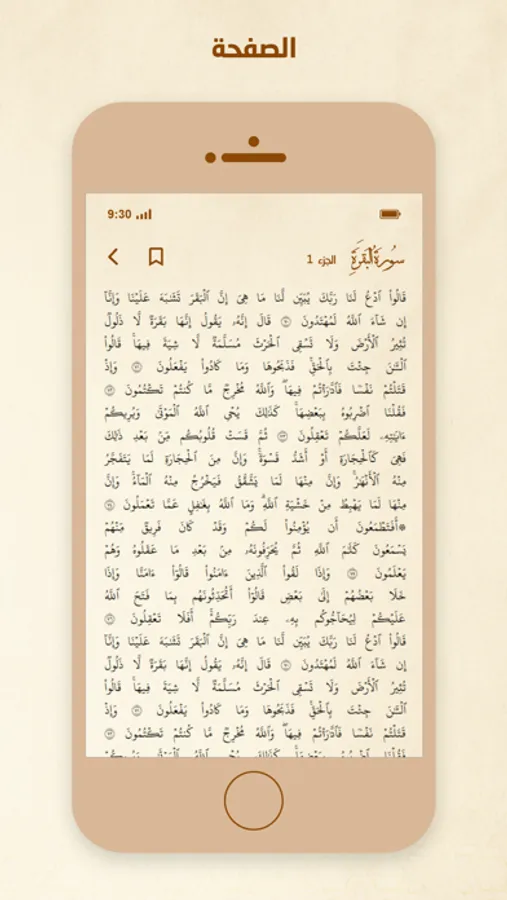 الصفحة
9:30
سُورَةُ الْبَقَرَةِ الجزء 1
قَالُوا۟ ٱدْعُ لَنَا رَبَّكَ يُبَيِّن لَّنَا مَا هِىَ إِنَّ ٱلْبَقَرَ تَشَٰبَهَ عَلَيْنَا وَإِنَّآ
إِن شَآءَ ٱللَّهُ لَمُهْتَدُونَ ۝ قَالَ إِنَّهُۥ يَقُولُ إِنَّهَا بَقَرَةٌ لَّا ذَلُولٌ
تُثِيرُ ٱلْأَرْضَ وَلَا تَسْقِى ٱلْحَرْثَ مُسَلَّمَةٌ لَّا شِيَةَ فِيهَا ۚ قَالُوا۟
ٱلْـَٰٔنَ جِئْتَ بِٱلْحَقِّ ۚ فَذَبَحُوهَا وَمَا كَادُوا۟ يَفْعَلُونَ ۝ وَإِذْ
قَتَلْتُمْ نَفْسًا فَٱدَّٰرَْٰٔتُمْ فِيهَا ۖ وَٱللَّهُ مُخْرِجٌ مَّا كُنتُمْ تَكْتُمُونَ ۝
فَقُلْنَا ٱضْرِبُوهُ بِبَعْضِهَا ۚ كَذَٰلِكَ يُحْىِ ٱللَّهُ ٱلْمَوْتَىٰ وَيُرِيكُمْ
ءَايَٰتِهِۦ لَعَلَّكُمْ تَعْقِلُونَ ۝ ثُمَّ قَسَتْ قُلُوبُكُم مِّنۢ بَعْدِ ذَٰلِكَ
فَهِىَ كَٱلْحِجَارَةِ أَوْ أَشَدُّ قَسْوَةً ۚ وَإِنَّ مِنَ ٱلْحِجَارَةِ لَمَا يَتَفَجَّرُ
مِنْهُ ٱلْأَنْهَٰرُ ۚ وَإِنَّ مِنْهَا لَمَا يَشَّقَّقُ فَيَخْرُجُ مِنْهُ ٱلْمَآءُ ۚ وَإِنَّ
مِنْهَا لَمَا يَهْبِطُ مِنْ خَشْيَةِ ٱللَّهِ ۗ وَمَا ٱللَّهُ بِغَٰفِلٍ عَمَّا تَعْمَلُونَ ۝
۞ أَفَتَطْمَعُونَ أَن يُؤْمِنُوا۟ لَكُمْ وَقَدْ كَانَ فَرِيقٌ مِّنْهُمْ
يَسْمَعُونَ كَلَٰمَ ٱللَّهِ ثُمَّ يُحَرِّفُونَهُۥ مِنۢ بَعْدِ مَا عَقَلُوهُ وَهُمْ
يَعْلَمُونَ ۝ وَإِذَا لَقُوا۟ ٱلَّذِينَ ءَامَنُوا۟ قَالُوٓا۟ ءَامَنَّا وَإِذَا
خَلَا بَعْضُهُمْ إِلَىٰ بَعْضٍ قَالُوٓا۟ أَتُحَدِّثُونَهُم بِمَا فَتَحَ ٱللَّهُ
عَلَيْكُمْ لِيُحَآجُّوكُم بِهِۦ عِندَ رَبِّكُمْ ۚ أَفَلَا تَعْقِلُونَ ۝
قَالُوا۟ ٱدْعُ لَنَا رَبَّكَ يُبَيِّن لَّنَا مَا هِىَ إِنَّ ٱلْبَقَرَ تَشَٰبَهَ عَلَيْنَا وَإِنَّآ
إِن شَآءَ ٱللَّهُ لَمُهْتَدُونَ ۝ قَالَ إِنَّهُۥ يَقُولُ إِنَّهَا بَقَرَةٌ لَّا ذَلُولٌ
تُثِيرُ ٱلْأَرْضَ وَلَا تَسْقِى ٱلْحَرْثَ مُسَلَّمَةٌ لَّا شِيَةَ فِيهَا ۚ قَالُوا۟
ٱلْـَٰٔنَ جِئْتَ بِٱلْحَقِّ ۚ فَذَبَحُوهَا وَمَا كَادُوا۟ يَفْعَلُونَ ۝ وَإِذْ
قَتَلْتُمْ نَفْسًا فَٱدَّٰرَْٰٔتُمْ فِيهَا ۖ وَٱللَّهُ مُخْرِجٌ مَّا كُنتُمْ تَكْتُمُونَ ۝